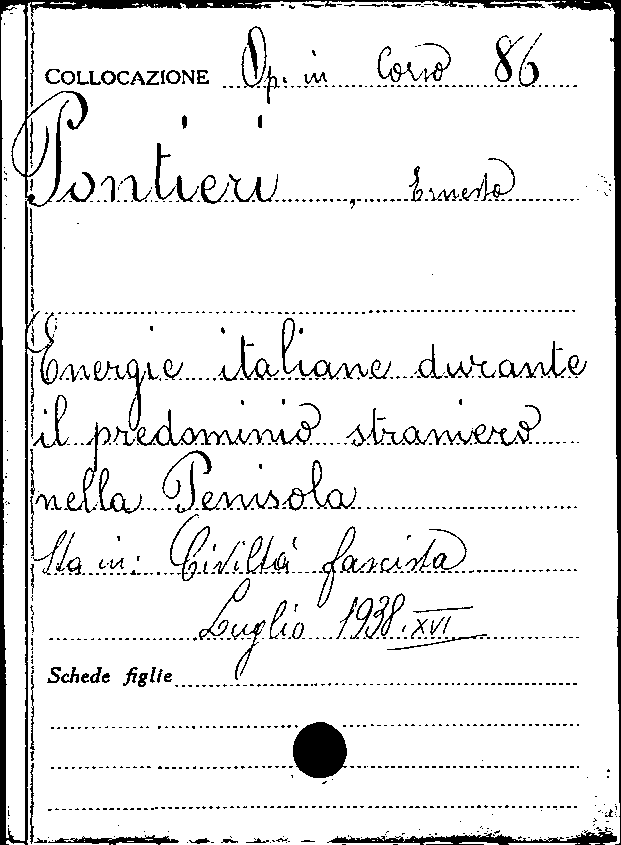 COLLOCAZIONE Op. in Corso 86
Pontieri, Ernesto
Energie italiane durante
il predominio straniero
nella Penisola
Sta in: Civiltà fascista
Luglio 1938. XVI
Schede figlie